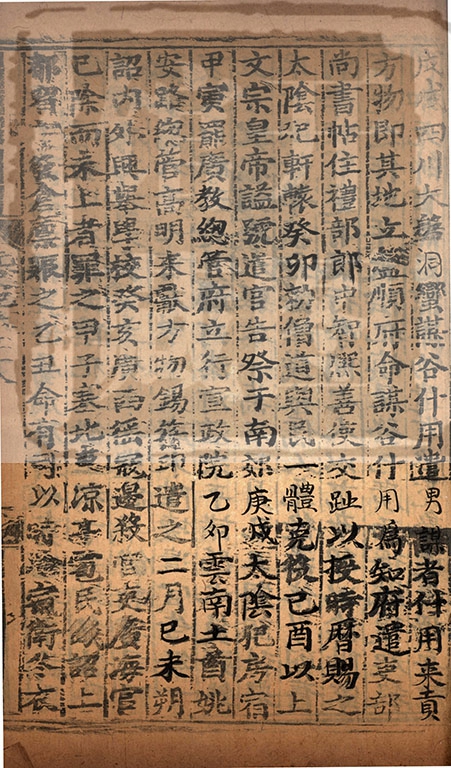 戊戌四川大盤洞蠻謀谷什用遣男謀者什用來貢
方物即其地立盤順府命謀谷什用為知府遣吏部
尚書帖住禮部郎中智熙善使交趾以授時曆賜之
太陰犯軒轅癸卯勑僧道與民一體充役己酉以上
文宗皇帝謚號遣官告祭于南郊庚戌太陰犯房宿
甲寅罷廣教總管府立行宣政院乙卯雲南土酋姚
安路總管高明來獻方物錫符印遣之二月己未朔
詔內外興舉學校癸亥廣西猺寇邊殺官吏廣海官
已除而未上者罪之甲子塞北東涼亭雹民饑詔上
都留守發倉廩賑之乙丑命有司以時給宿衛冬衣